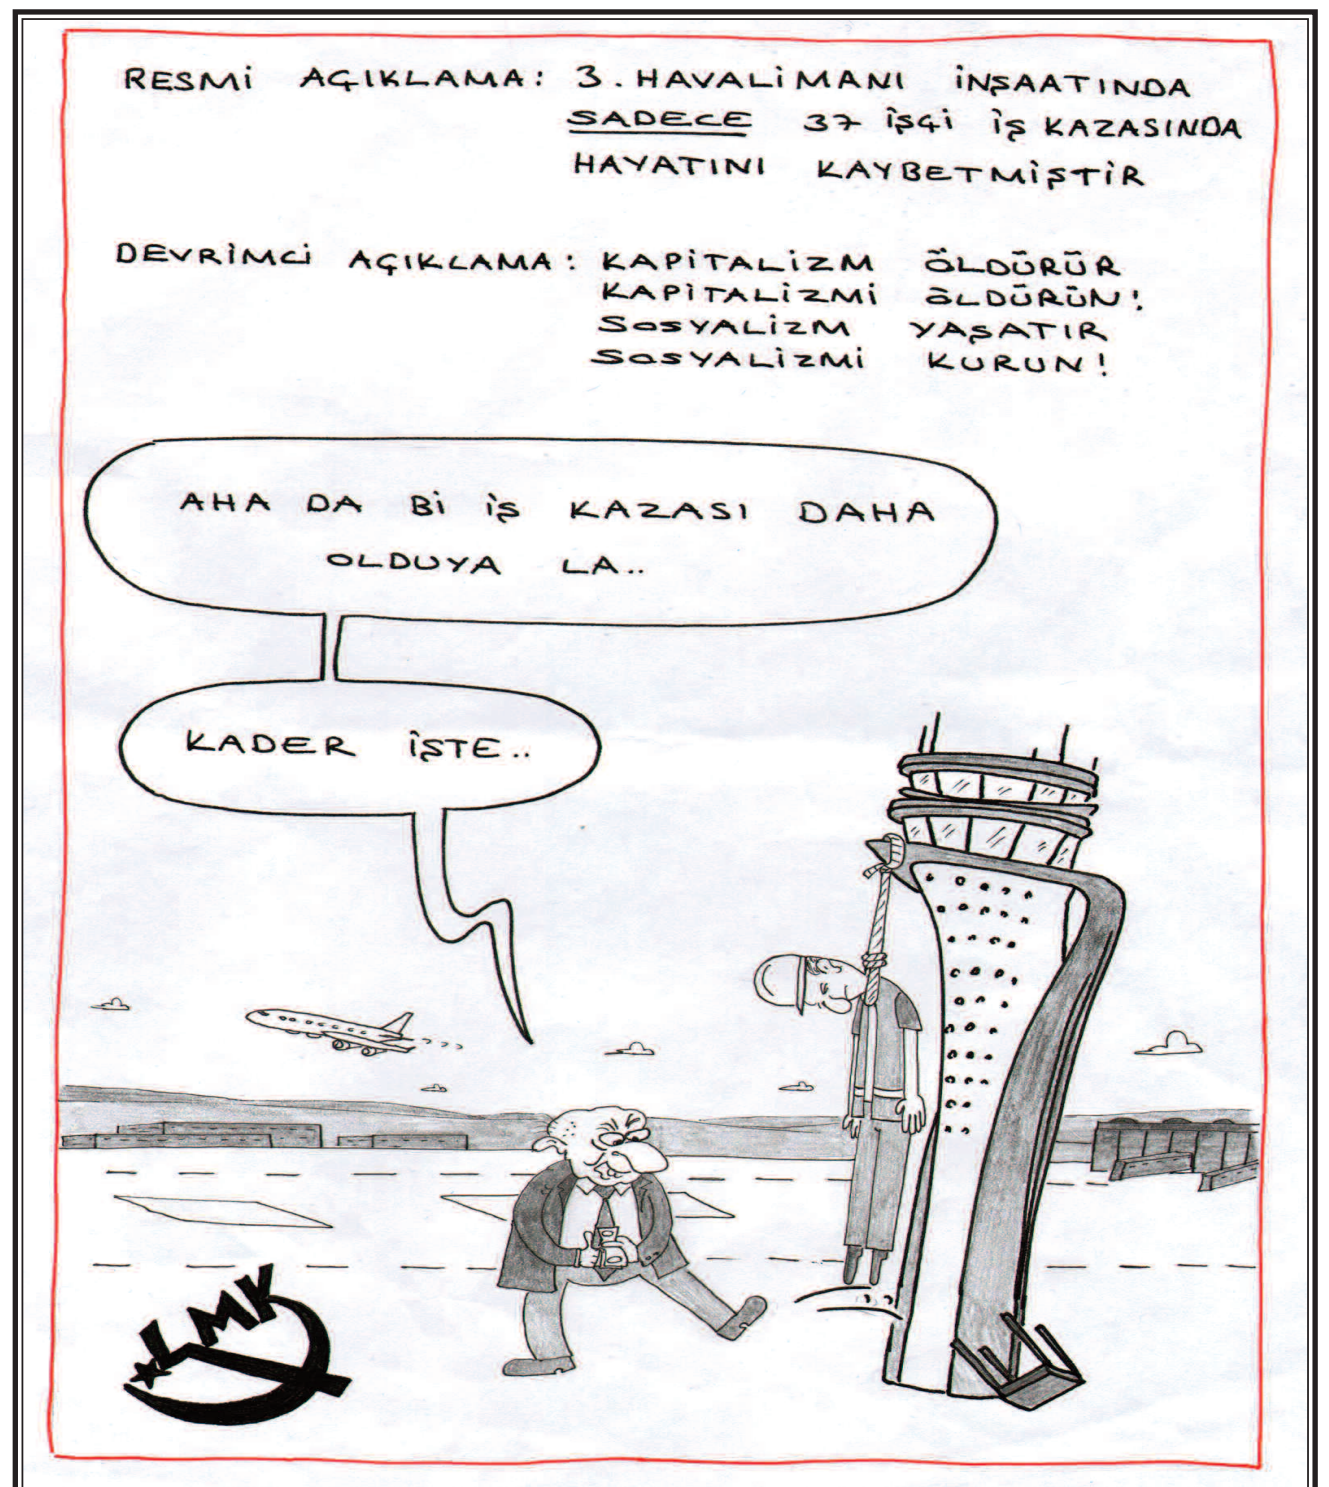 RESMİ AÇIKLAMA: 3. HAVALİMANI İNŞAATINDA
SADECE 37 İŞÇİ İŞ KAZASINDA
HAYATINI KAYBETMİŞTİR
DEVRİMCİ AÇIKLAMA: KAPİTALİZM ÖLDÜRÜR
KAPİTALİZMİ ÖLDÜRÜN!
SOSYALİZM YAŞATIR
SOSYALİZMİ KURUN!
AHA DA Bİ İŞ KAZASI DAHA
OLDUYA LA..
KADER İŞTE..
LMK